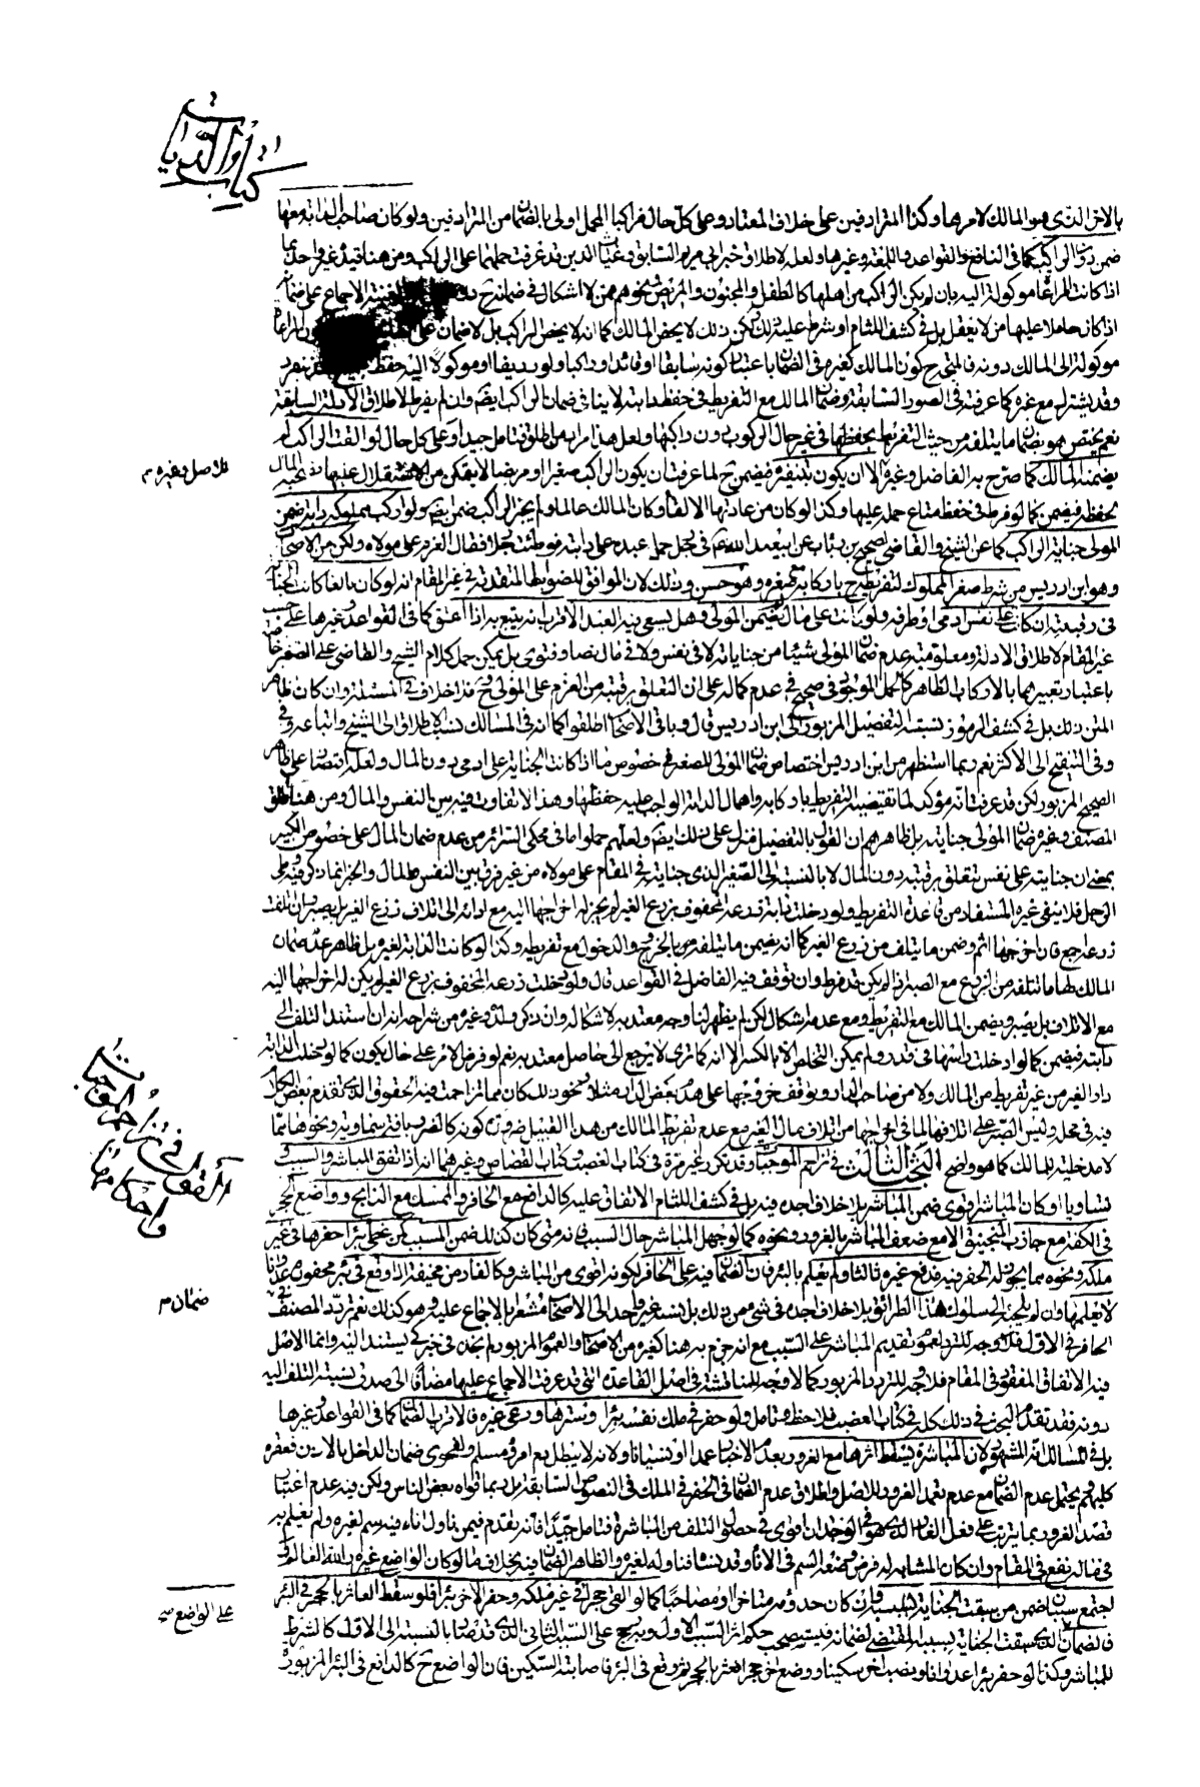 كتاب الديات
بالاخر الذى هو المالك لامرها وكذا المترادفين على خلاف المعتاد وعلى كل حال فراكبا المحمل اولى بالضمان من المترادفين ولو كان صاحب الدابة معها
ضمن دون الراكب كما فى النافع والقواعد واللمعة وغيرها ولعله لاطلاق خبرى مريم السابق وغياث الذين قد عرفت حملهما على الراكب ومن هنا قيده غير واحد بما
اذا كانت المراعاة موكولة اليه بان لم يكن الراكب من اهلها كالطفل والمجنون والمريض ونحوهم من لا اشكال فى ضمانه ح الاجماع على ضمانه
اذا كان حاملا عليها من لا يعقل بل فى كشف اللثام او شرط عليه ذلك لكن ذلك لا يخص المالك كما انه لا يخص الراكب بل لا ضمان على المراعاة
موكولة الى المالك دونه فالمتجه ح كون المالك كغيره فى الضمان باعتبار كونه سابقا او قائدا او راكبا ولو رديفا او موكولا اليه حفظ فينفرد
وقد يشترك مع غيره كما عرفته فى الصور السابقة وضمان المالك مع التفريط فى حفظ دابته لا ينافى ضمان الراكب ايضا وان لم يفرط لاطلاق الادلة السابقة
نعم يختص هو بضمان ما يتلفه من حيث التفريط بحفظها فى غير حال الركوب دون راكبها ولعل هذا مراد من اطلق فتامل جيدا وعلى كل حال لو القت الراكب لم
يضمنه المالك كما صرح به الفاضل وغيره الا ان يكون بتنفيره فيضمن ح لما عرفت ان يكون الراكب صغيرا او مريضا لا يتمكن من الاستقلال عليها المالك
للاصل وغيره م
بحفظه فيضمن كما لو فرط فى حفظ متاع حمله عليها وكذا لو كان من عادتها الالقاء وكان المالك عالما ولم يخبر الراكب ضمن ايضا ولو اركب مملوكه دابته ضمن
المولى جناية الراكب كما عن الشيخ والقاضى لصحيح بن رئاب عن ابيعبد الله ع فى رجل حمل عبده على دابته فوطئت رجلا فقال الغرم على مولاه ولكن من الاصحاب
وهو ابن ادريس من شرط صغر المملوك لتفريطه ح باركابه لصغره وهو حسن وذلك لان الموافق للضوابط المتقدمة فى غير المقام انه لو كان بالغا كانت الجناية
فى رقبته ان كانت على نفس ادمى او طرفه ولو كانت على مال لم يضمن المولى وهل يسعى فيه العبد الاقرب انه يتبع به اذا اعتق كما فى القواعد وغيرها على حسب
غير المقام لاطلاق الادلة ومعلومية عدم ضمان المولى شيئا من جناياته لا فى نفس ولا فى مال نصا وفتوى بل يمكن حمل كلام الشيخ والقاضى على الصغير خاصة
باعتبار تعبيرهما بالاركاب الظاهر كالحمل الموجود فى صحيح فى عدم كماله على ان التعلق برقبته من الغرم على المولى وح فلا خلاف فى المسئلة وان كان ظاهر
المتن ذلك بل فى كشف الرموز نسبة التفصيل المزبور الى ابن ادريس قال وباقى الاصحاب اطلقوا كما انه فى المسالك نسب الاطلاق الى الشيخ واتباعه
وفى التنقيح الى الاكثر نعم ربما استظهر من ابن ادريس اختصاص ضمان المولى للصغير فى خصوص ما اذا كانت الجناية على ادمى دون المال ولعله اقتصارا على ظاهر
الصحيح المزبور لكن قد عرفت انه مؤكد لما تقتضيه التفريط باركابه واهمال الدابة الواجب عليه حفظها وهذا لا تفاوت فيه بين النفس والمال ومن هنا اطلق
المصنف وغيره ضمان المولى جنايته بل ظاهرهم ان القول بالتفصيل منزل على ذلك ايضا ولعلهم حملوا ما فى محكى السرائر من عدم ضمان المال على خصوص الكبير
بمعنى ان جنايته على نفس تتعلق برقبته دون المال لا بالنسبة الى الصغير الذى جنايته فى المقام على مولاه من غير فرق بين النفس والمال والخبر انما ذكر فيه وطى
الرجل فلا ينفى غيره المستفاد من قاعدة التفريط ولو دخلت دابة زرعه المحفوف بزرع الغير لم يجز له اخراجها اليه مع ادائه الى اتلاف زرع الغير بل يصبر وان اتلفت
زرعه اجمع فان اخرجها اثم وضمن ما يتلف من زرع الغير كما انه يضمن ما يتلفه من بالخروج والدخول مع تفريطه وكذا لو كانت الدابة لغيره بل ظاهر عدم ضمان
المالك لها ما تتلفه من الزرع مع الصبر اذا لم يكن قد فرط وان توقف فيه الفاضل فى القواعد قال ولو دخلت زرعه المحفوف بزرع الغير لم يكن له اخراجها اليه
مع الاتلاف بل يصبر ويضمن المالك مع التفريط ومع عدمه اشكال لكن لم يظهر لنا وجه معتد به لاشكاله وان ذكر ولده وغيره من شراحه انه ان استند التلف الى
دابته فيضمن كما لو ادخلت راسها فى قدر ولم يمكن التخلص الا بالكسر الا انه كما ترى لا يرجع الى حاصل معتد به نعم لو فرض الامر على حال يكون كما لو دخلت الدابة
دار الغير من غير تفريط من المالك ولا من صاحب الدار وتوقف خروجها على هدم بعض الدار مثلا ونحو ذلك كان مما تزاحمت فيه الحقوق الذى تقدم بعض الكلام
فيه فى محله وليس الصبر على اتلافها المال فى اخراجها من اتلاف مال الغير مع عدم تفريط المالك من هذا القبيل ضرورة كونه كالتلف بافة سماوية ونحوها مما
لا مدخلية للمالك كما هو واضح البحث الثالث فى تزاحم الموجبات وقد تكرر غير مرة فى كتاب الغصب وكتاب القصاص وغيرهما انه اذا اتفق المباشر والسبب و
القول فى تزاحم الموجبات واحكامها
تساويا او كان المباشر اقوى ضمن المباشر بلا خلاف اجده فيه بل فى كشف اللثام الاتفاق عليه كالدافع مع الحافر والممسك مع الذابح وواضع الحجر
فى الكفة مع جاذب المنجنيق الا مع ضعف المباشر بالغرور ونحوه كما لو جهل المباشر حال السبب فانه متى كان كذلك ضمن المسبب كمن غطى بئرا حفرها فى غير
ملكه ونحوه مما يجوز له الحفر فيه فدفع غيره ثالثا ولم يعلم بالبئر فان الضمان فيه على الحافر لكونه اقوى من المباشر وكالفار من مخيفة اذا وقع فى بئر محفورة عدوانا
لا يعلمها وان لم يلجئه الى سلوك هذا الطرائق بلا خلاف اجده فى شىء من ذلك بل نسبه غير واحد الى الاصحاب مشعرا بالاجماع عليه وهو كذلك نعم تردد المصنف فى
ضمان م
الحافر فى الاول فلا وجه للتردد لعموم تقديم المباشر على السبب مع انه جزم به هنا كغيره من الاصحاب والعموم المزبور لم نجده فى خبر كى يستند اليه وانما الاصل
فيه الاتفاق المفقود فى المقام فلا وجه للتردد المزبور كما لا وجه للمناقشة فى اصل القاعدة التى قد عرفت الاجماع عليها مضافا الى صدق نسبة التلف اليه
دونه فقد تقدم البحث فى ذلك كله فى كتاب الغصب فلاحظ وتامل ولو حفر فى ملك نفسه بئرا وسترها ودعى غيره فالاقرب الضمان كما فى القواعد وغيرها
بل فى المسالك انه المشهور لان المباشرة يسقط اثرها مع الغرور بعدم الاخبار عمدا او نسيانا ولانه لا يبطل دم امرئ مسلم ولفحوى ضمان الداخل بالاذن فعقره
كلبهم ويحتمل عدم الضمان مع عدم تعمد الغرور للاصل واطلاق عدم الضمان فى الحفر فى الملك فى النصوص السابقة بل ربما قواه بعض الناس ولكن فيه عدم اعتبار
قصد الغرور بما يترتب على فعل الغار الذى هو فى الوجدان اقوى فى حصول التلف من المباشرة فتامل جيدا فانه تقدم فيمن ناول اناء فيه سم لغيره ولم يعلم به
فى ماله نفع فى المقام وان كان المشابه له فرض وضعه السم فى الاناء وقد نسيه فناوله لغيره والظاهر الضمان فيه بخلاف ما لو كان الواضع غيره والله العالم ولو
اجتمع سببان ضمن من سبقت الجناية بسببه وان كان حدوثه متاخرا او مصاحبا كما لو القى حجرا فى غير ملكه وحفر الاخر بئرا فلو سقط العاثر بالحجر فى البئر
فالضمان الذى سبقت الجناية بسببه المقتضى لضمانه فيستصحب حكم اثر السبب الاول ويرجح على السبب الثانى الذى قد صار بالنسبة الى الاول كالشرط
على الواضع صح
للمباشر وكذا لو حفر بئرا عدوانا ونصب اخر سكينا ووضع اخر حجرا فعثر بالحجر فوقع فى البئر فاصابته السكين فان الواضع ح كالدافع فى البئر المزبورة